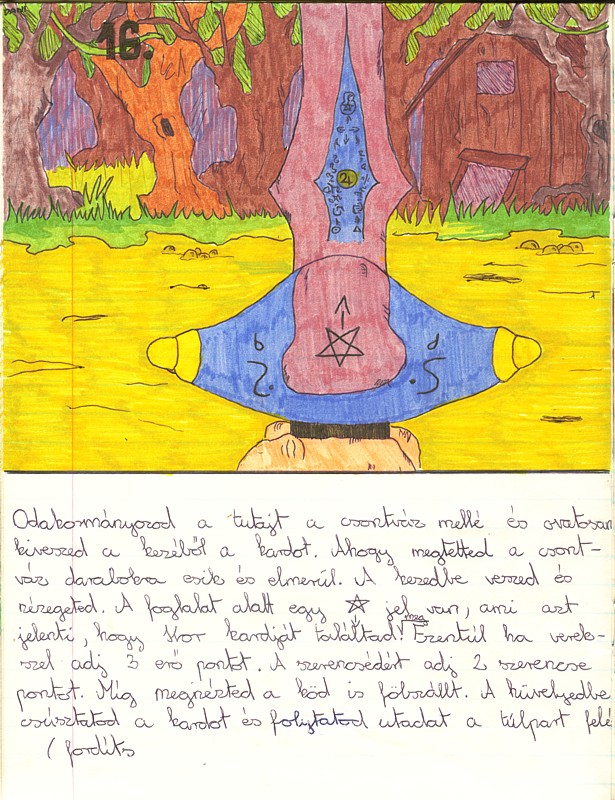 DANI
16.
Odakormányozod a tutajt a csontváz mellé és ovatosan
kiveszed a kezéből a kardot. Ahogy megtetted a csont-
váz darabokra esik és elmerűl. A kezedbe veszed és
nézegeted. A foglalat alatt egy jel van, ami azt
jelenti, hogy Kor kardját találtad meg! Ezentúl ha verek-
szel adj 3 erő pontot. A szerencsédért adj 2 szerencse
pontot. Míg megnézted a köd is fölszállt. A hüvelyedbe
csúsztatod a kardot és folytatod utadat a túlpart felé
(fordíts